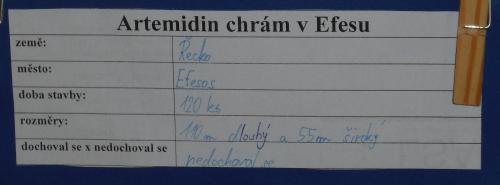 Artemidin chrám v Efesu
země: Řecko
město: Efesos
doba stavby: 120 let
rozměry: 110m dlouhý a 55m široký
dochoval se x nedochoval se nedochoval se